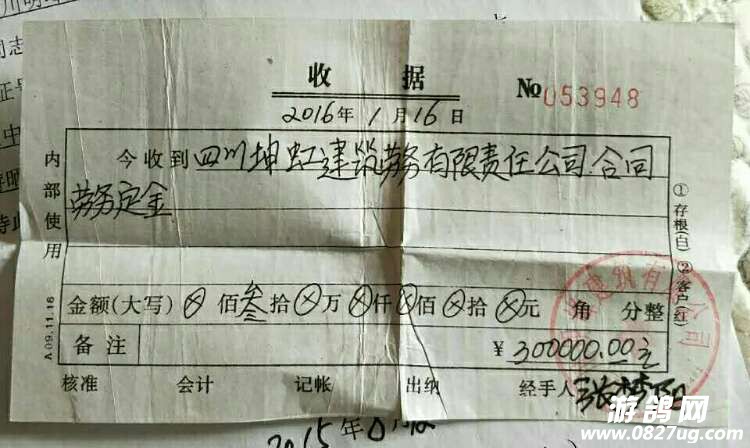 收 据
№053948
2016年1月16日
今收到四川坤虹建筑劳务有限责任公司.合同
劳务定金
金额(大写) ⊗ 佰叁拾⊗万⊗仟⊗佰⊗拾⊗元 角 分整
备注 ¥300000.00元
核准 会计 记帐 出纳 经手人
内部使用
A09.11.16
①存根(白)②客户(红)
建筑有
公司
2015年
游鸽网
www.0827ug.com